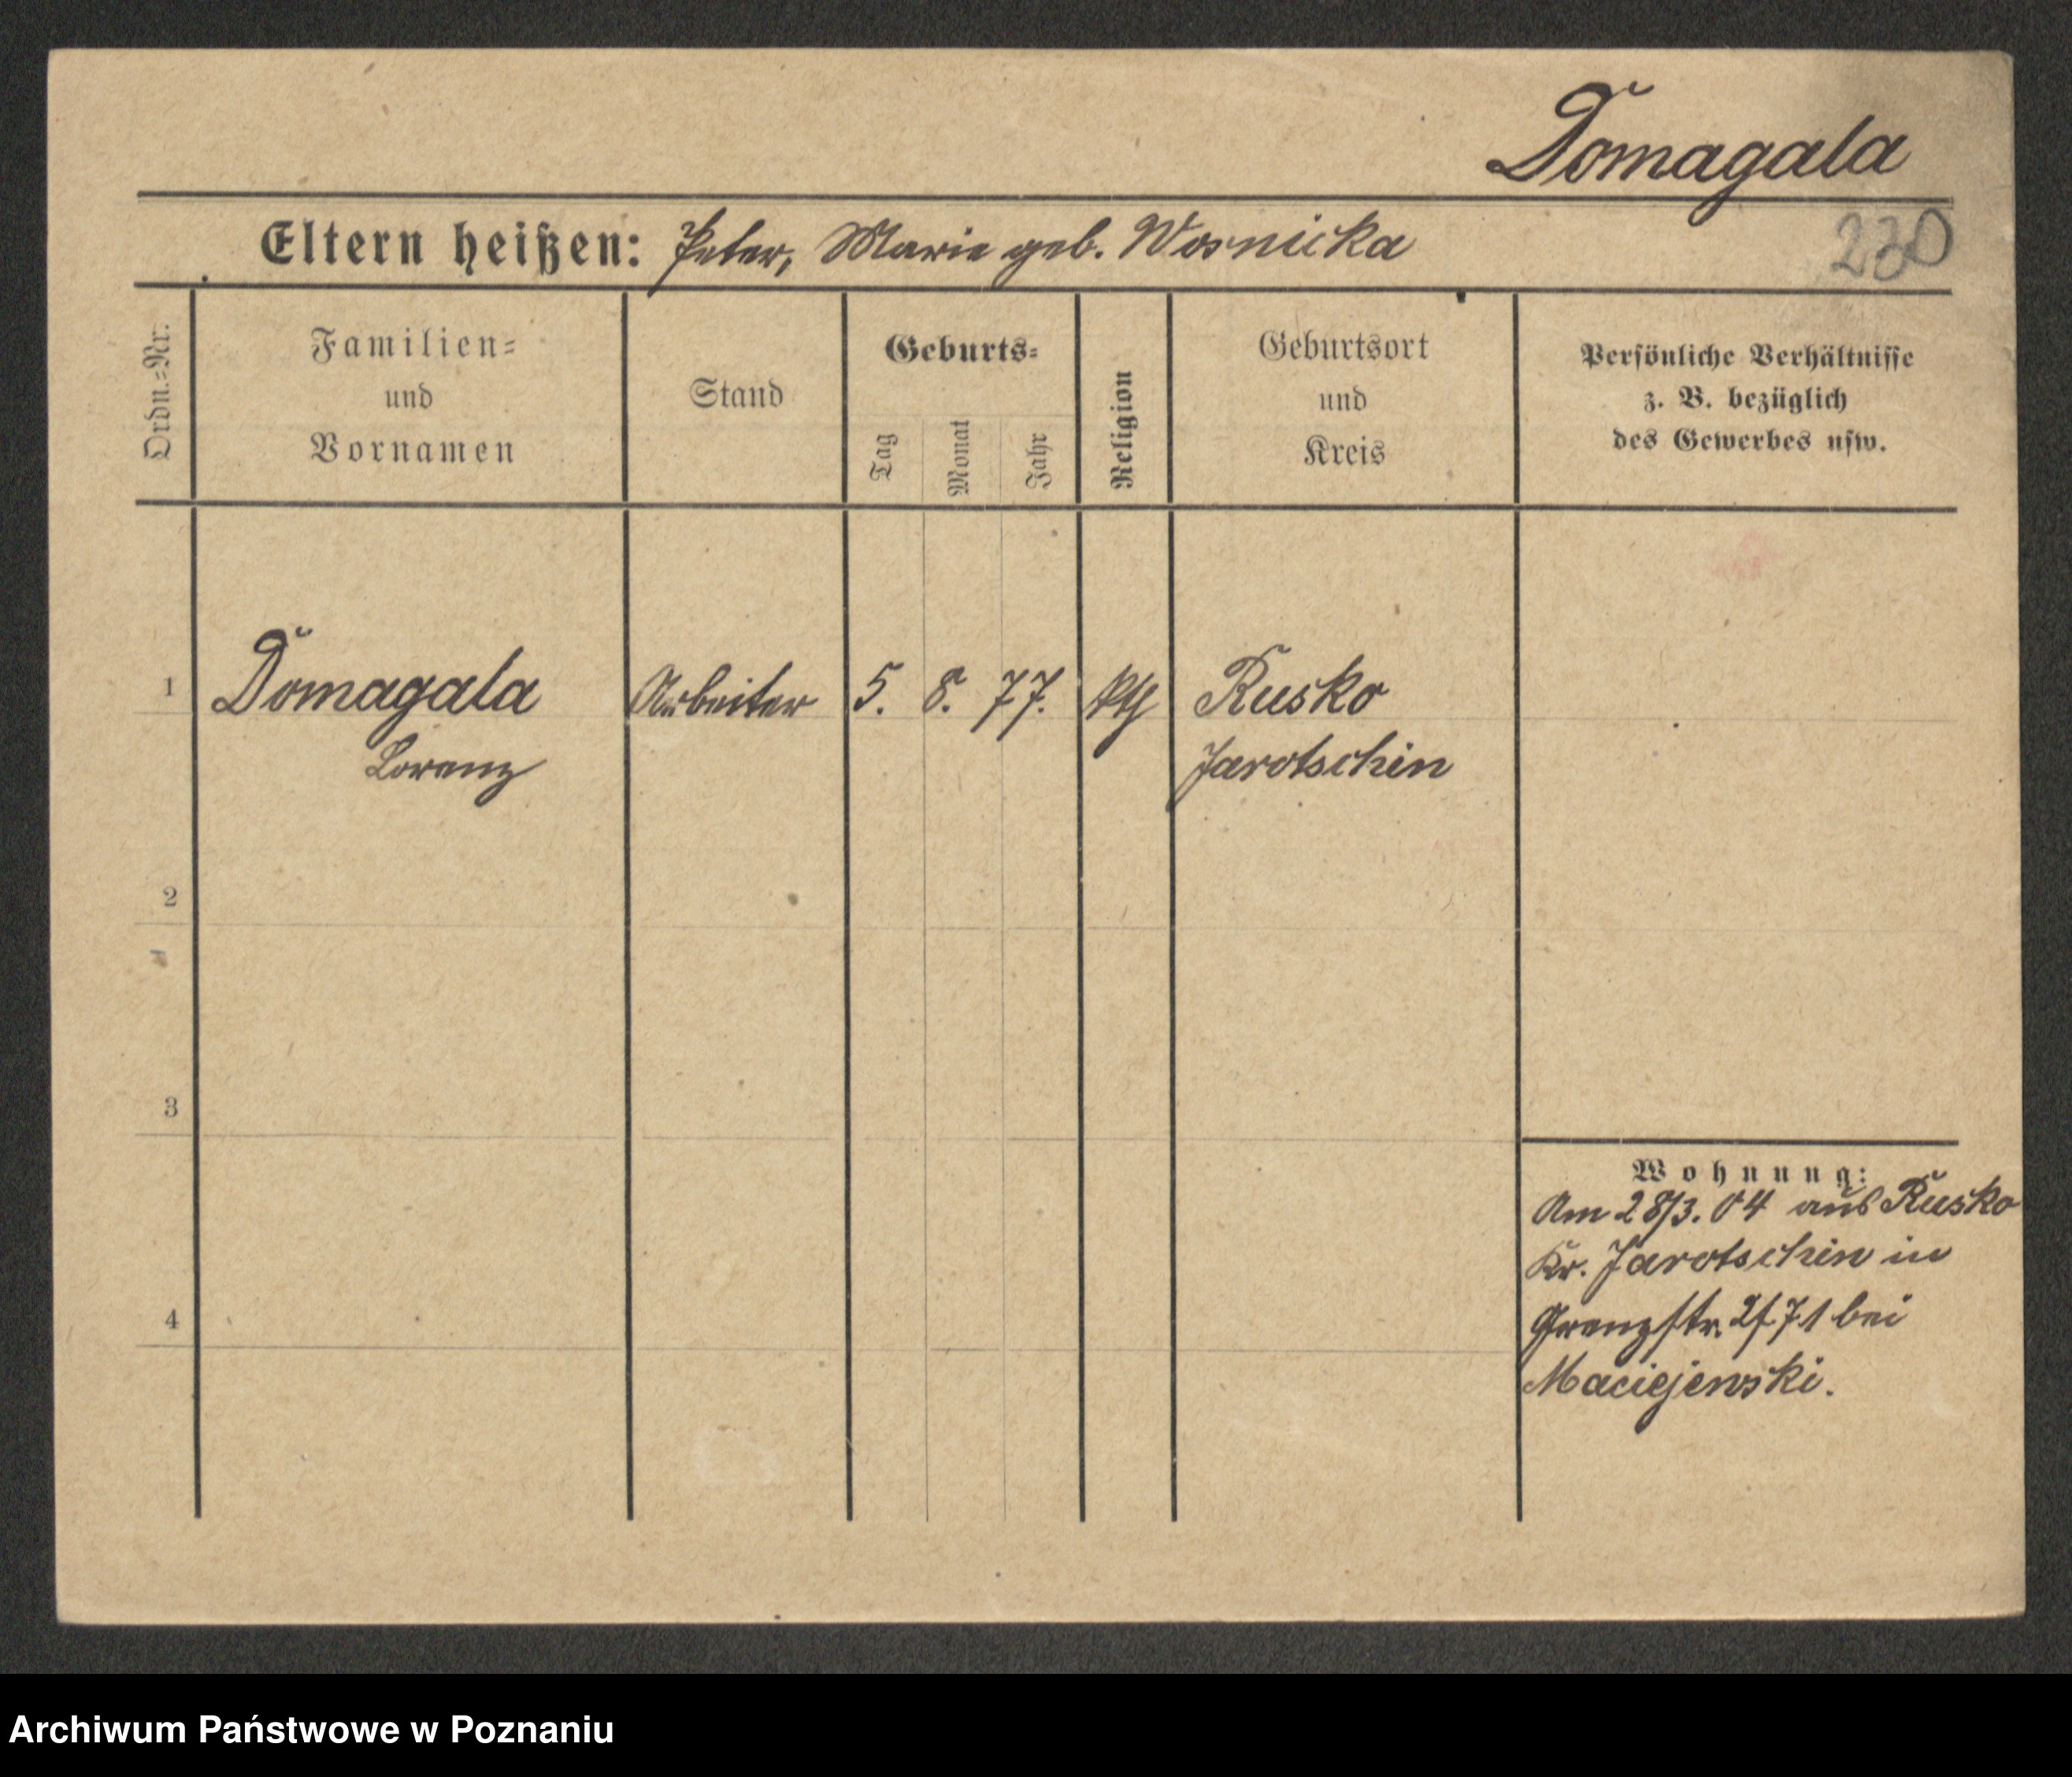 Domagala
Eltern heißen: Peter, Marie geb. Wosnicka
230
Ordn.=Nr.
Familien=
und
Vornamen
Stand
Geburts=
Tag
Monat
Jahr
Religion
Geburtsort
und
Kreis
Persönliche Verhältnisse
z. B. bezüglich
des Gewerbes usw.
1 Domagala Arbeiter 5. 8. 77. kth Rusko
Lorenz Jarotschin
2
3
4
Wohnung:
Am 28/3. 04 aus Rusko
Kr. Jarotschin in
Grenzstr. 71 bei
Maciejewski.
Archiwum Państwowe w Poznaniu